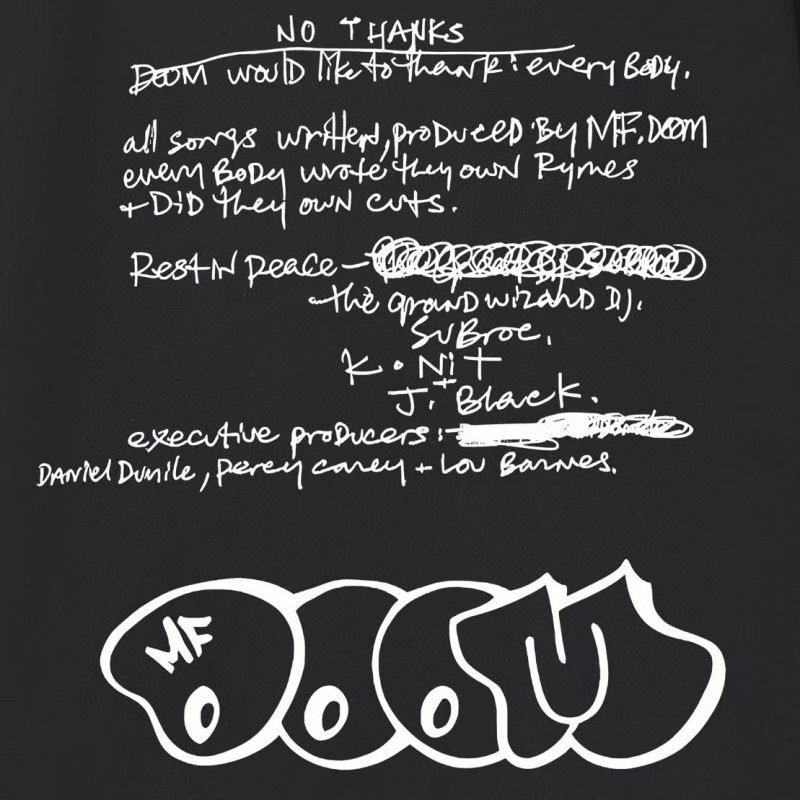 NO THANKS
DOOM would like to thank: every Body.
all songs written, produced By MF. DOOM
every Body wrote they own Rymes
+ DID they own cuts.
Rest in peace -
- the grand wizard DJ.
SuBroc.
K. Nit
+
J. Black.
executive producers: -
Daniel Dumile, percy carey + Lou Barnes.
MF
DOOM